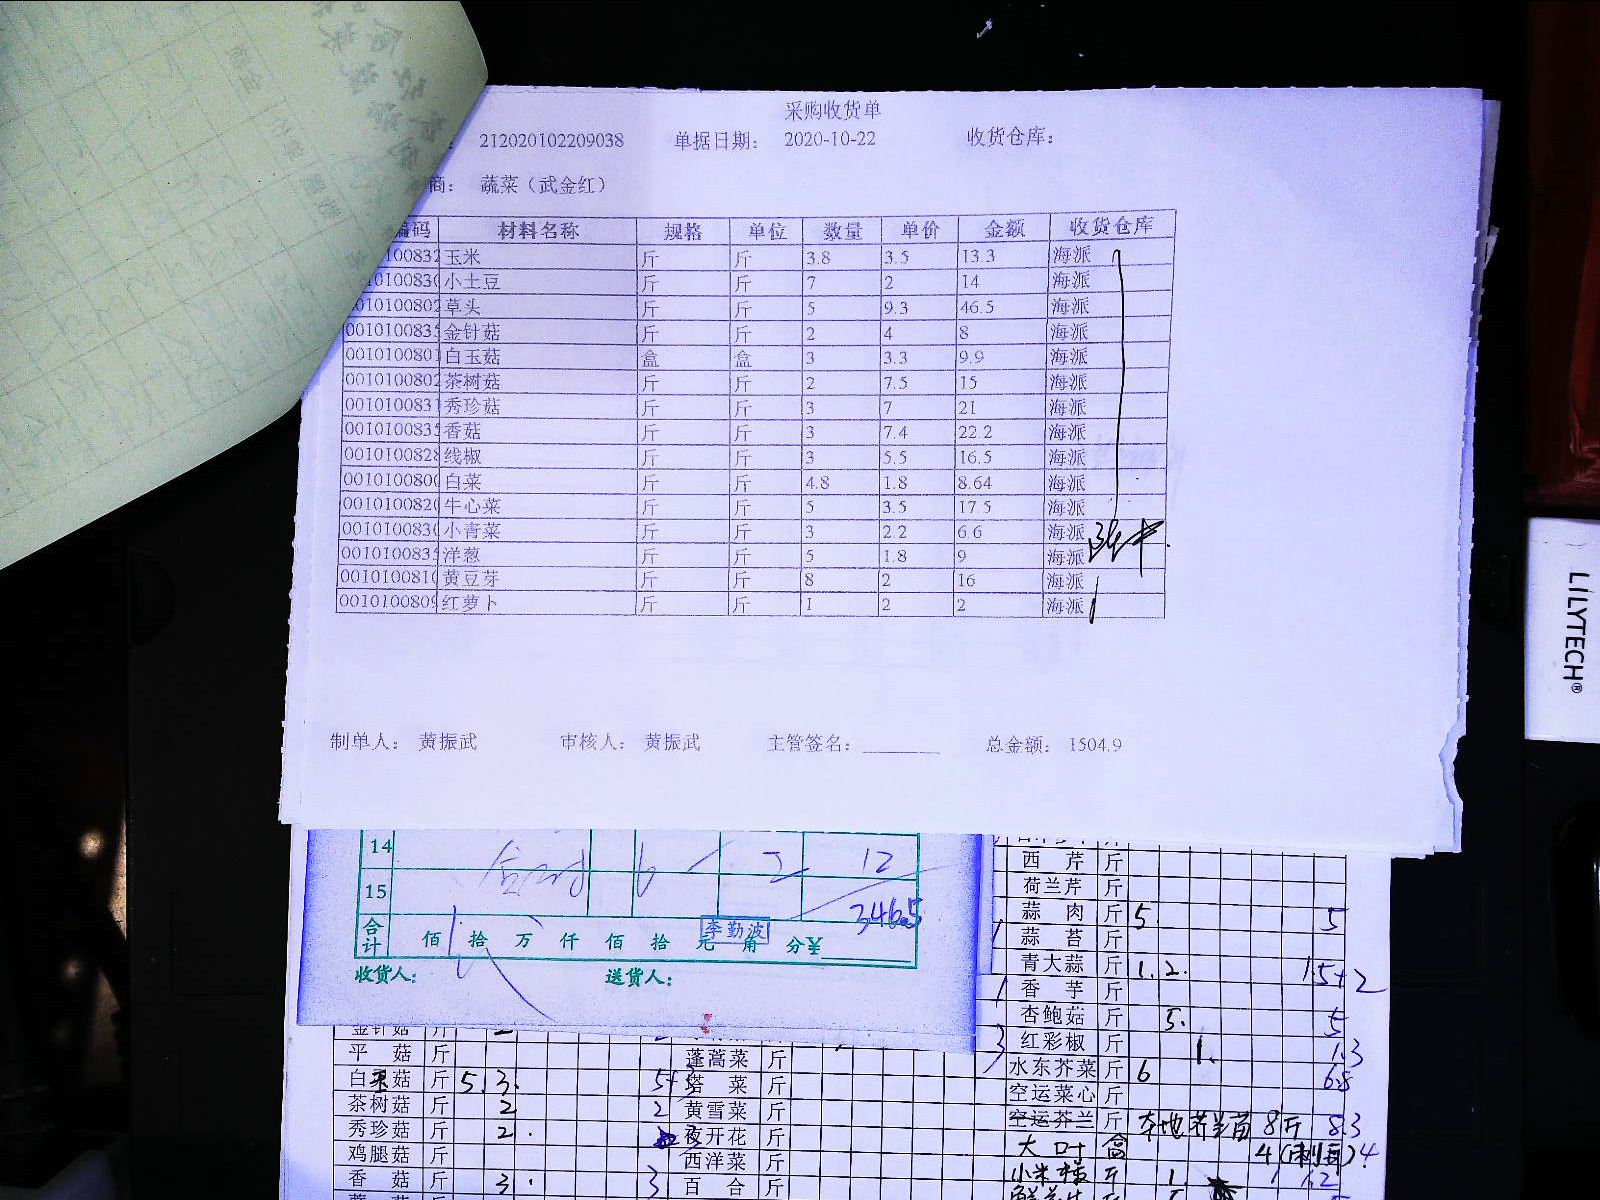 采购收货单
212020102209038 单据日期: 2020-10-22 收货仓库:
商: 蔬菜（武金红）
编码 材料名称 规格 单位 数量 单价 金额 收货仓库
玉米 斤 斤 3.8 3.5 13.3 海派
小土豆 斤 斤 7 2 14 海派
草头 斤 斤 5 9.3 46.5 海派
0010100835 金针菇 斤 斤 2 4 8 海派
0010100801 白玉菇 盒 盒 3 3.3 9.9 海派
0010100802 茶树菇 斤 斤 2 7.5 15 海派
0010100831 秀珍菇 斤 斤 3 7 21 海派
0010100835 香菇 斤 斤 3 7.4 22.2 海派
0010100828 线椒 斤 斤 3 5.5 16.5 海派
001010080 白菜 斤 斤 4.8 1.8 8.64 海派
001010082 牛心菜 斤 斤 5 3.5 17.5 海派
001010083 小青菜 斤 斤 3 2.2 6.6 海派
0010100835 洋葱 斤 斤 5 1.8 9 海派
001010081 黄豆芽 斤 斤 8 2 16 海派
0010100809 红萝卜 斤 斤 1 2 2 海派
制单人: 黄振武 审核人: 黄振武 主管签名: 总金额: 1504.9
LILYTECH®
14 6 2 12
15 346.5
合计 佰 拾 万 仟 佰 拾 元 角 分¥
李勤波
收货人: 送货人:
西芹 斤
荷兰芹 斤
蒜肉 斤 5 5
蒜苔 斤
青大蒜 斤 1.2. 1.5+2
香芋 斤
杏鲍菇 斤 5. 5
红彩椒 斤 1. 1.3
水东芥菜 斤 6 6.8
空运菜心 斤
空运芥兰 斤 本地芥兰苗 8斤 8.3
大叶 盒 4
小米椒 斤 1. 1.2
金针菇 斤 2
平菇 斤 蓬蒿菜 斤
白玉菇 斤 5.3. 塔菜 斤
茶树菇 斤 2 2 黄雪菜 斤
秀珍菇 斤 2. 夜开花 斤
鸡腿菇 斤 西洋菜 斤
香菇 斤 3. 3 百合 斤